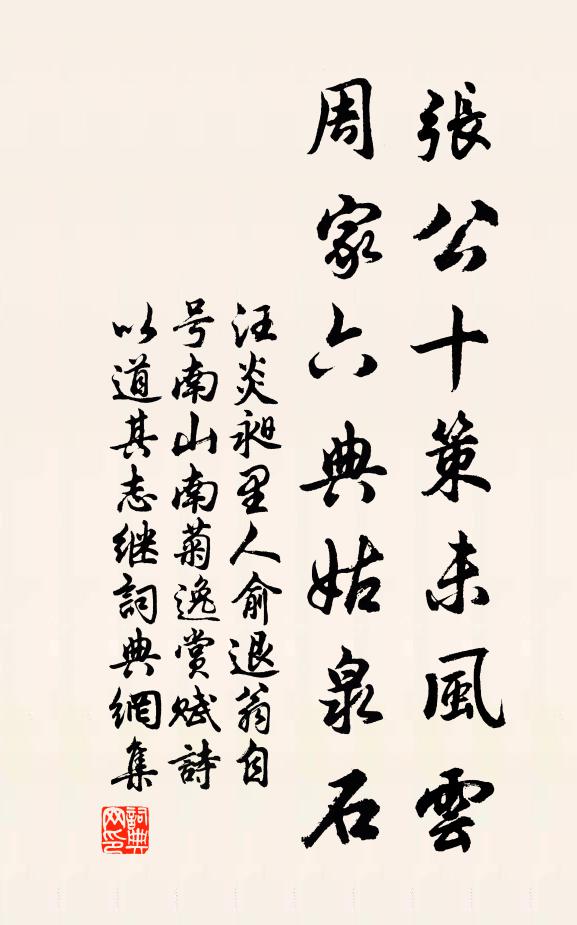 張公十策未風雲
周家六典姑泉石
汪炎昶里人俞退翁自
号南山南菊逸賞賦詩
以道其志继詞典網集
詞典网印